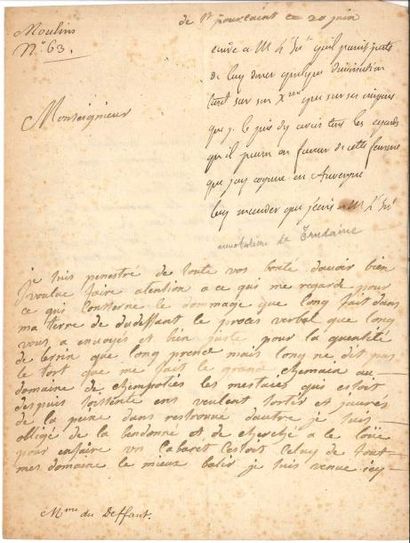 Moulins
N.° 63.
de St pourcaint ce 20 juin
ecrire a M L'In.t qu'il paroit juste
de luy donner quelque diminution
tant sur son X.me que sur ses
que je le prie d'y avoir tous les egards
qu'il pourra en faveur de cette femme
que j'ay connue en Auvergne
luy mander que j'ecris a M L'In.t
annotation de Trudaine
Monseigneur
je suis penestré de toute vos bonté d'avoir bien
voulue faire atention a ce qui me regarde pour
ce qui consterne le dommage que l'ong fait dans
ma terre de dudeffant le proces verbal que l'ong
vous a envoyés et bien juste pour la quentité
de terin que l'ong prend mais l'ong ne dit pas
le tort que me fait le grand chemain au
domaine de les mestaiés qui estoit
despuis soisente ens veulent sortir et j'aurés
de la peine d'ans restrouvé d'autre je suis
obligé de la bendonné et de cherché a le loüe
pour en faire un Cabaret C'estoit Celuy de tout
mes domaine le mieux batis je suis venue icy
M.me du Deffant.